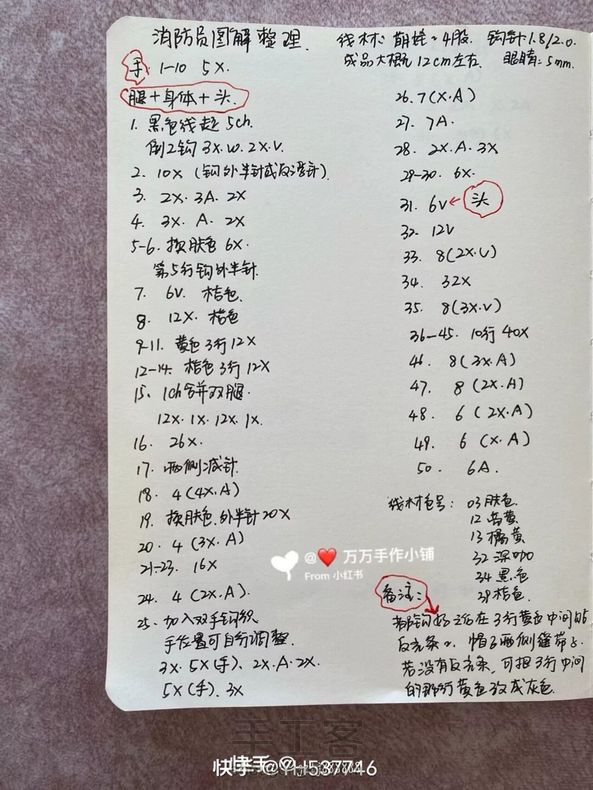 消防员图解整理.
线材: 萌娃~4股. 钩针1.8/2.0.
成品大概12cm左右 眼睛:5mm.
手 1-10 5X.
腿+身体+头.
1. 黑色线起 5ch.
倒2钩 3X.W.2X.V.
2. 10X (钩外半针或反浮针).
3. 2X.3A.2X
4. 3X. A. 2X
5-6. 换肤色 6X.
第5行钩外半针.
7. 6V. 桔色.
8. 12X. 桔色
9-11. 黄色3行12X
12-14. 桔色3行12X
15. 1ch合并双腿.
12X.1X.12X.1X.
16. 26X.
17. 两侧减针.
18. 4(4X.A)
19. 换肤色.外半针20X
20. 4(3X.A)
21-23. 16X
24. 4(2X.A).
25. 加入双手钩织
手位置可自行调整.
3X.5X(手).2X.A.2X.
5X(手).3X
26. 7(X.A)
27. 7A.
28. 2X.A.3X
29-30. 6X.
31. 6V ← 头
32. 12V
33. 8(2X.V)
34. 32X
35. 8(3X.V)
36-45. 10行40X
46. 8(3X.A)
47. 8(2X.A)
48. 6(2X.A)
49. 6(X.A)
50. 6A.
线材色号: 03肤色.
12鸟黄
13橘黄
32深咖
34黑色
39桔色.
备注:
都钩好之后在3行黄色中间
反光条. 帽子两侧缝带子.
若没有反光条,可把3行中间
的那行黄色改成灰色.
@❤️万万手作小铺
From 小红书
手工客
快手 @YH537746